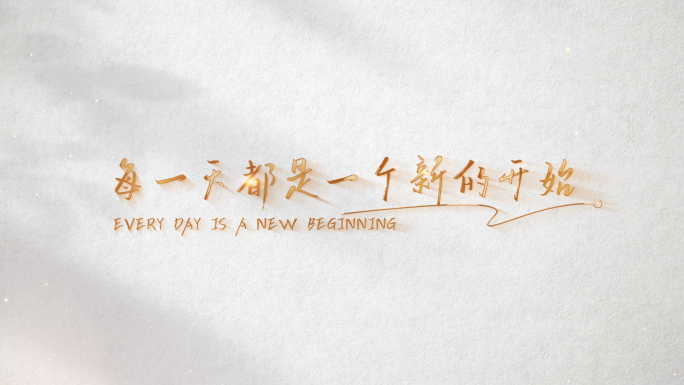 每一天都是一个新的开始。
EVERY DAY IS A NEW BEGINNING